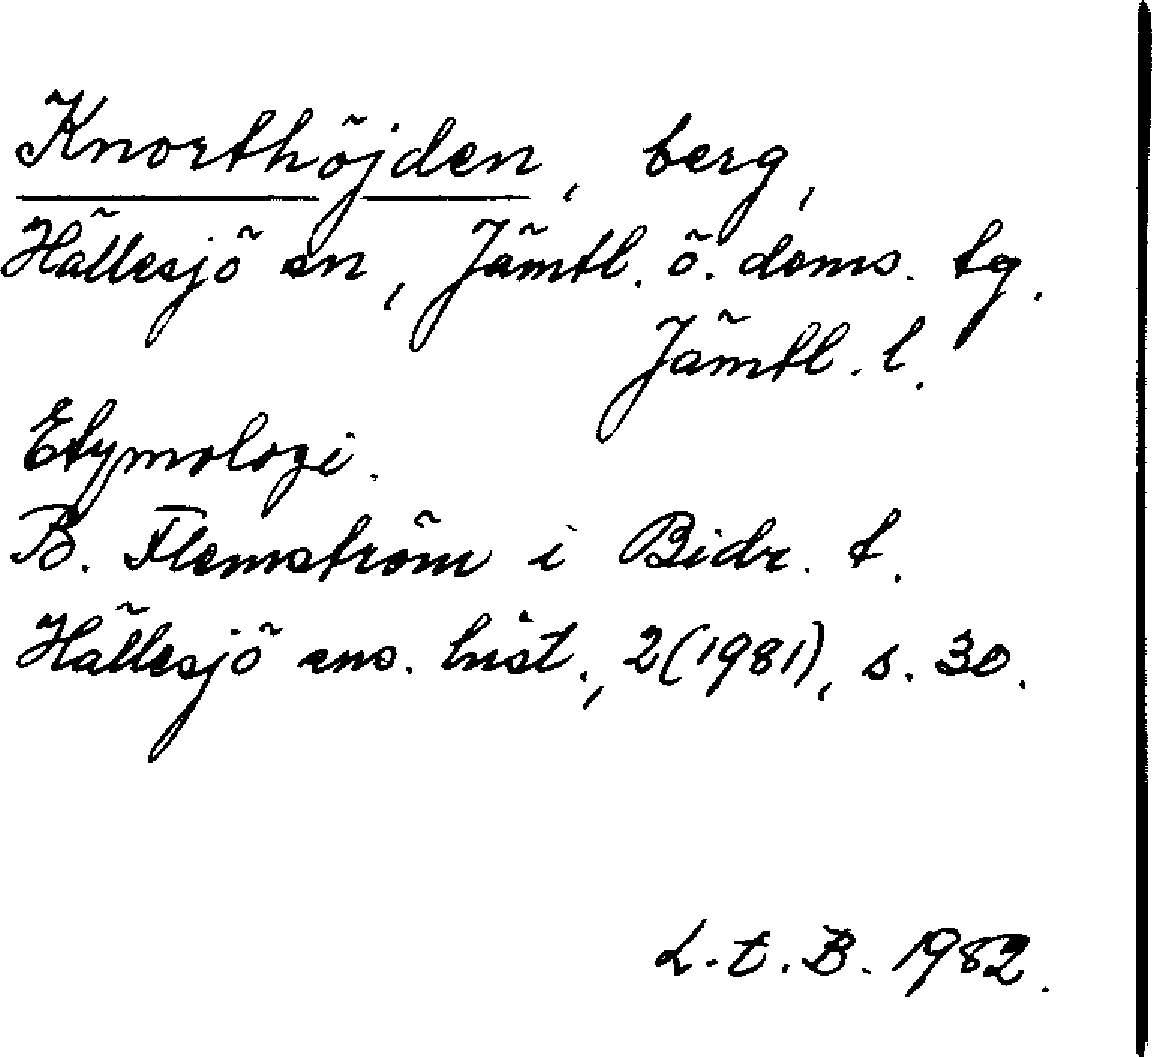 Knorthöjden, berg,
Hällesjö sn, Jämtl. ö. doms. tg.
Jämtl. l.
Etymologi.
B. Flemström i Bidr. t.
Hällesjö sns. hist., 2(1981), s. 30.
L.t.B. 1982.